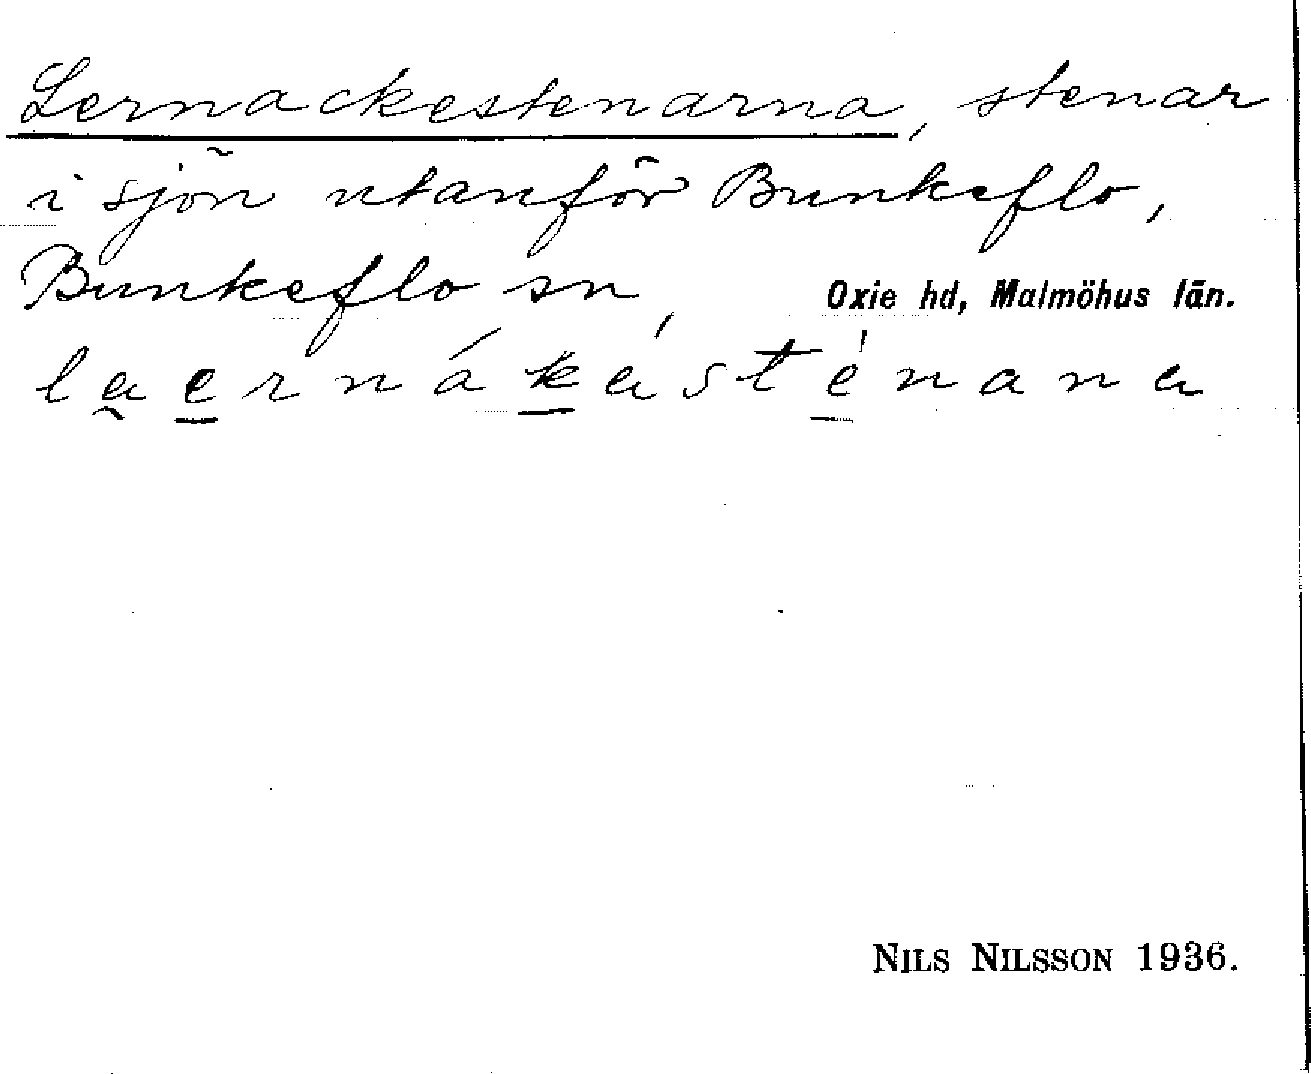 Lernackestenarna, stenar
i sjön utanför Bunkeflo,
Bunkeflo sn, Oxie hd, Malmöhus län.
laernákásténana
NILS NILSSON 1936.